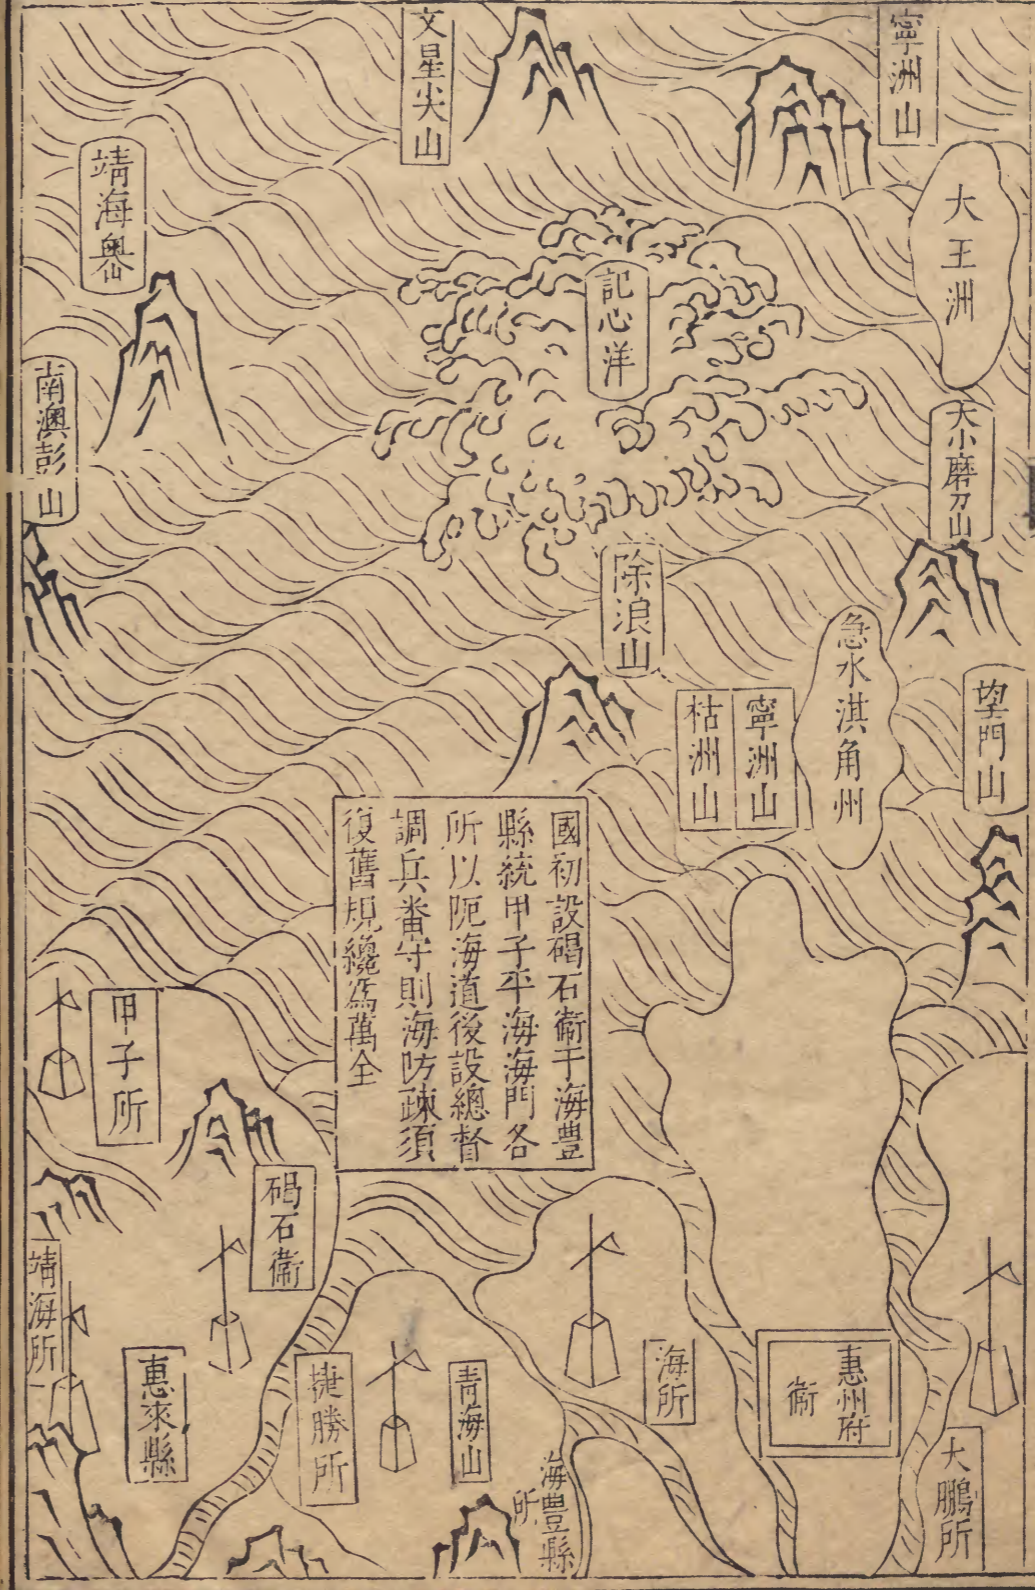 寧洲山
文星尖山
大王洲
靖海
記心洋
南澳彭山
大小磨刀山
除浪山
急水淇角州
望門山
寧洲山
枯洲山
國初設碣石衛于海豊
縣統甲子平海海門各
所以阨海道後設總督
調兵畨守則海防踈須
復舊規纔爲萬全
甲子所
碣石衛
靖海所
惠來縣
捷勝所
青海山
海豊縣
所
海所
惠州府
衛
大鵬所